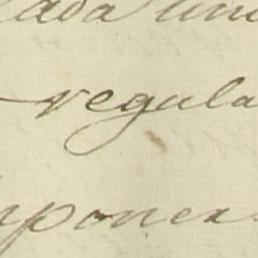 cada un
regula
ponen